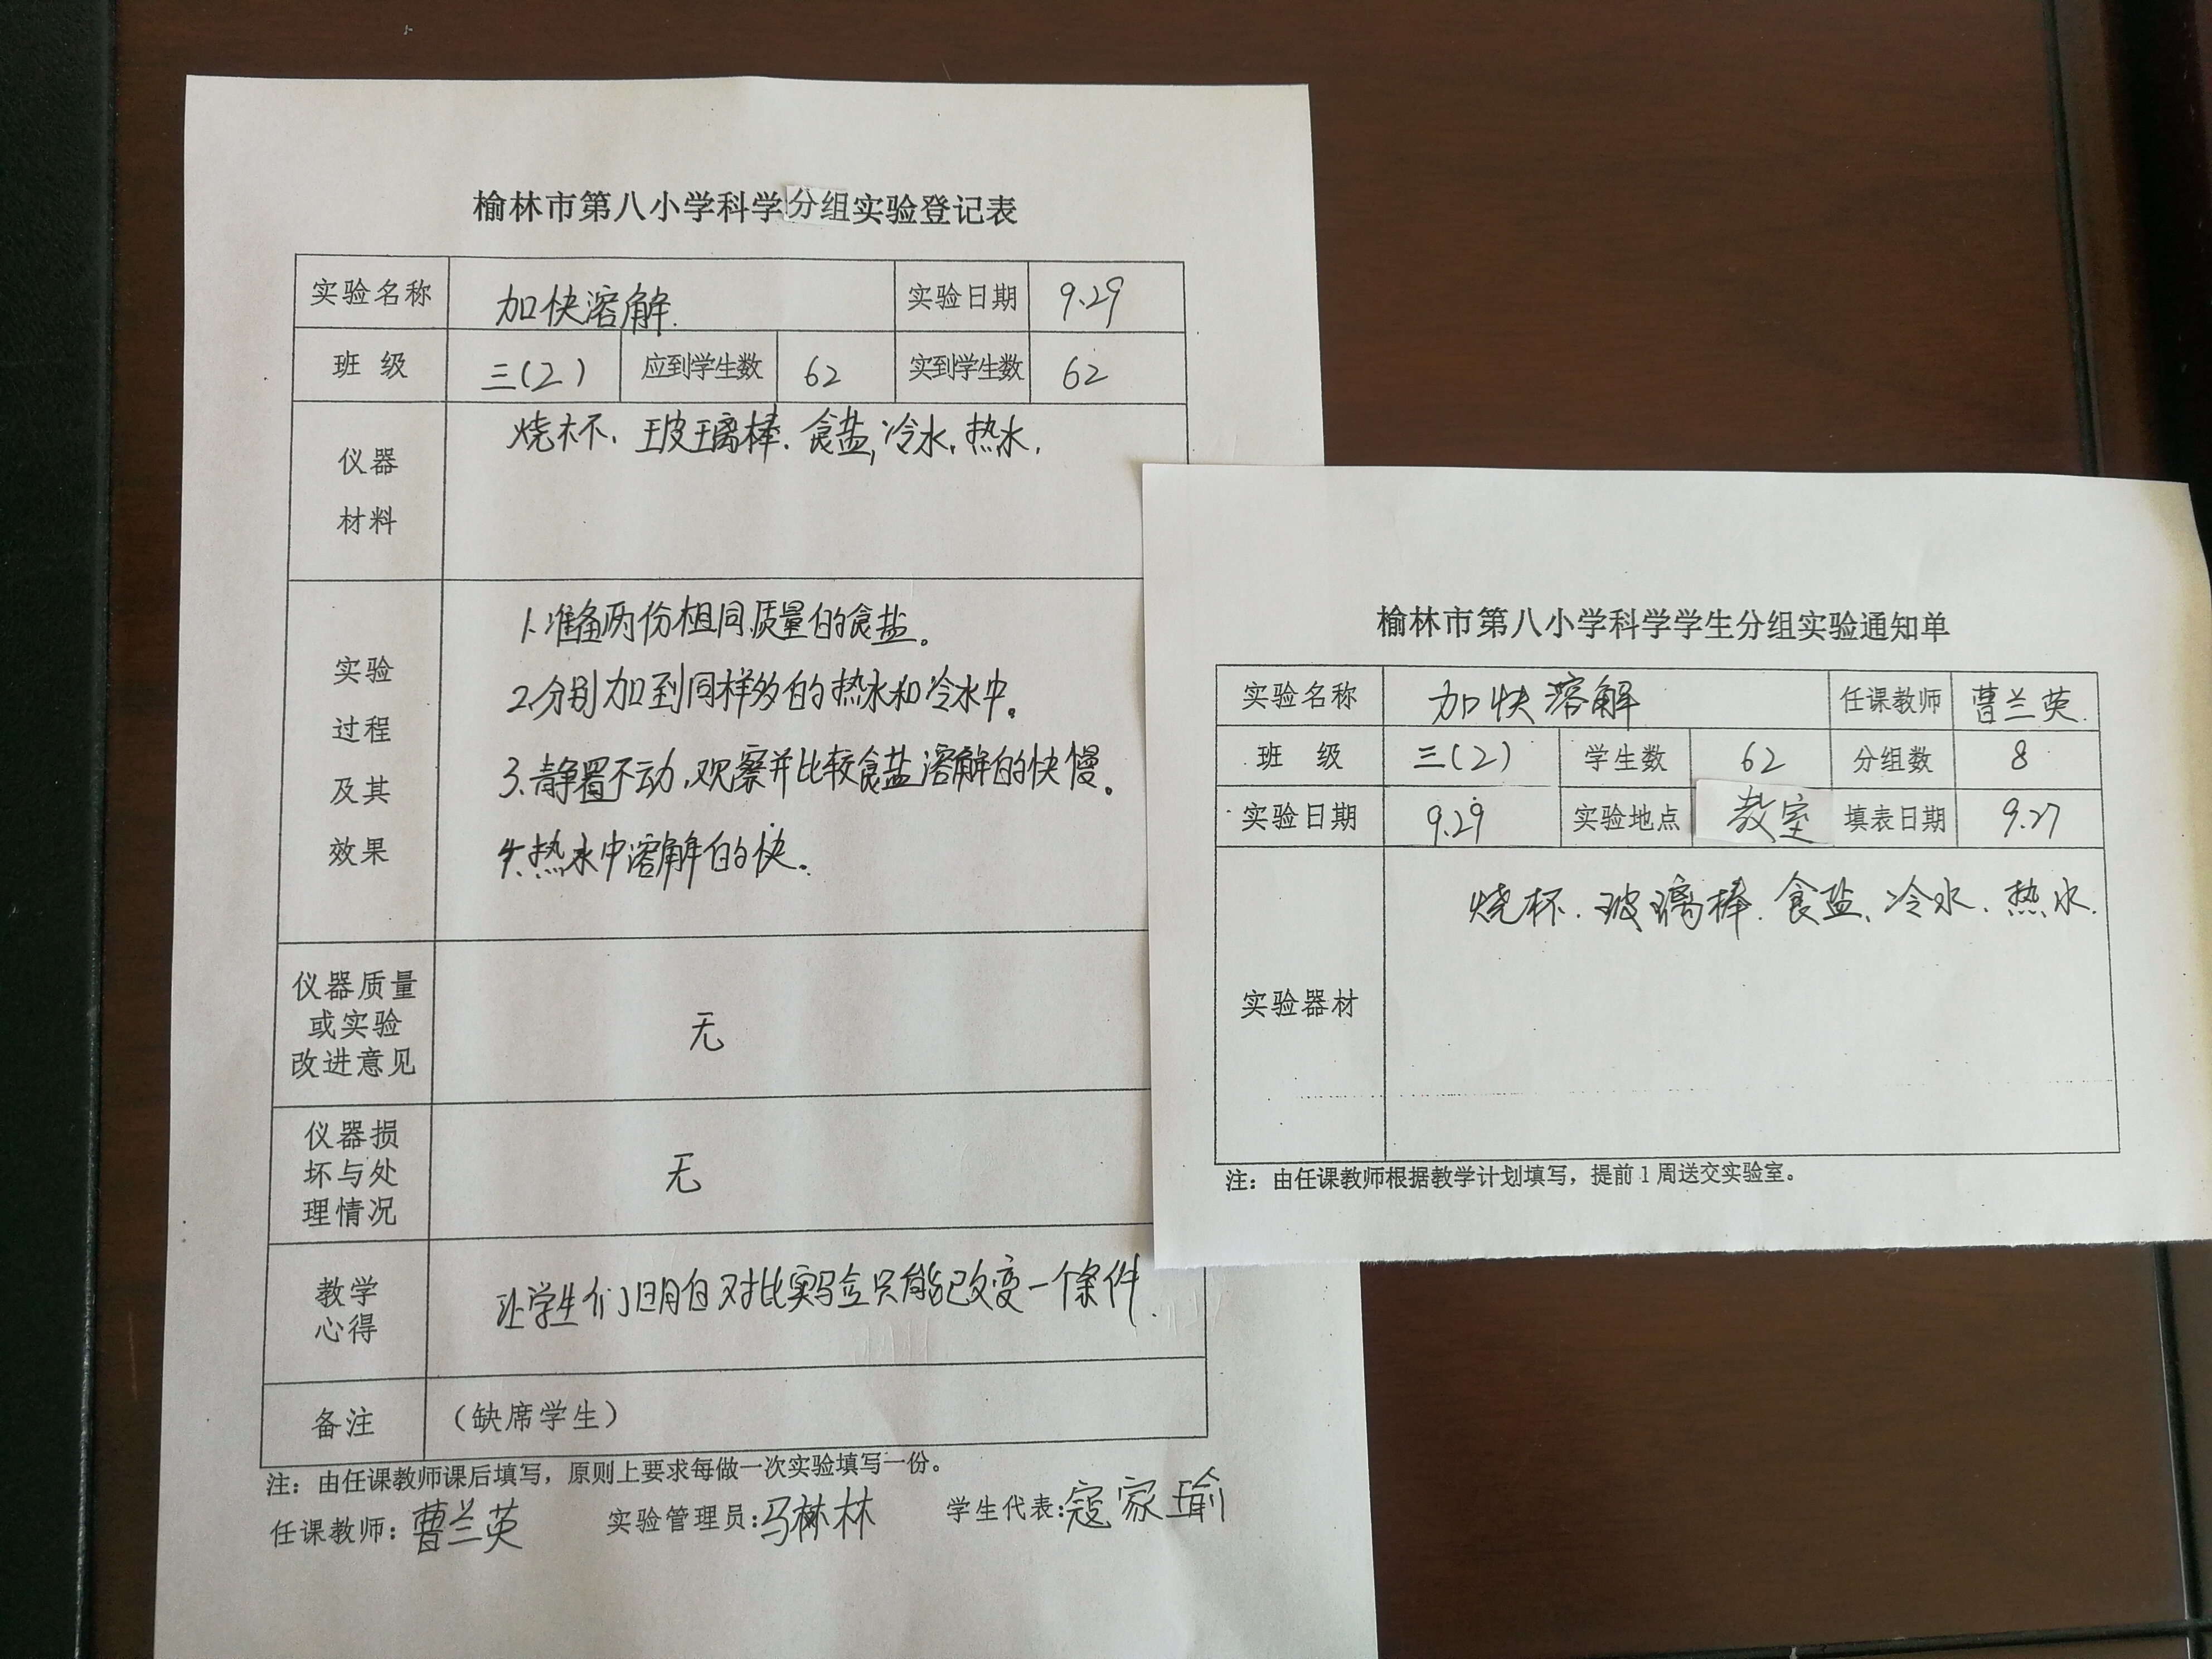 榆林市第八小学科学分组实验登记表
实验名称 加快溶解. 实验日期 9.29
班 级 三(2) 应到学生数 62 实到学生数 62
仪器
材料
烧杯、玻璃棒、食盐,冷水,热水.
实验
过程
及其
效果
1.准备两份相同质量的食盐。
2.分别加到同样多的热水和冷水中。
3.静置不动,观察并比较食盐溶解的快慢。
4.热水中溶解的快。
仪器质量
或实验
改进意见
无
仪器损
坏与处
理情况
无
教学
心得
让学生们明白对比实验只能改变一个条件.
备注 (缺席学生)
注：由任课教师课后填写，原则上要求每做一次实验填写一份。
任课教师：曹兰英 实验管理员：马林林 学生代表：寇家瑜
榆林市第八小学科学学生分组实验通知单
实验名称 加快溶解 任课教师 曹兰英.
班 级 三(2) 学生数 62 分组数 8
实验日期 9.29 实验地点 教室 填表日期 9.27
实验器材
烧杯.玻璃棒.食盐、冷水、热水.
注：由任课教师根据教学计划填写，提前1周送交实验室。